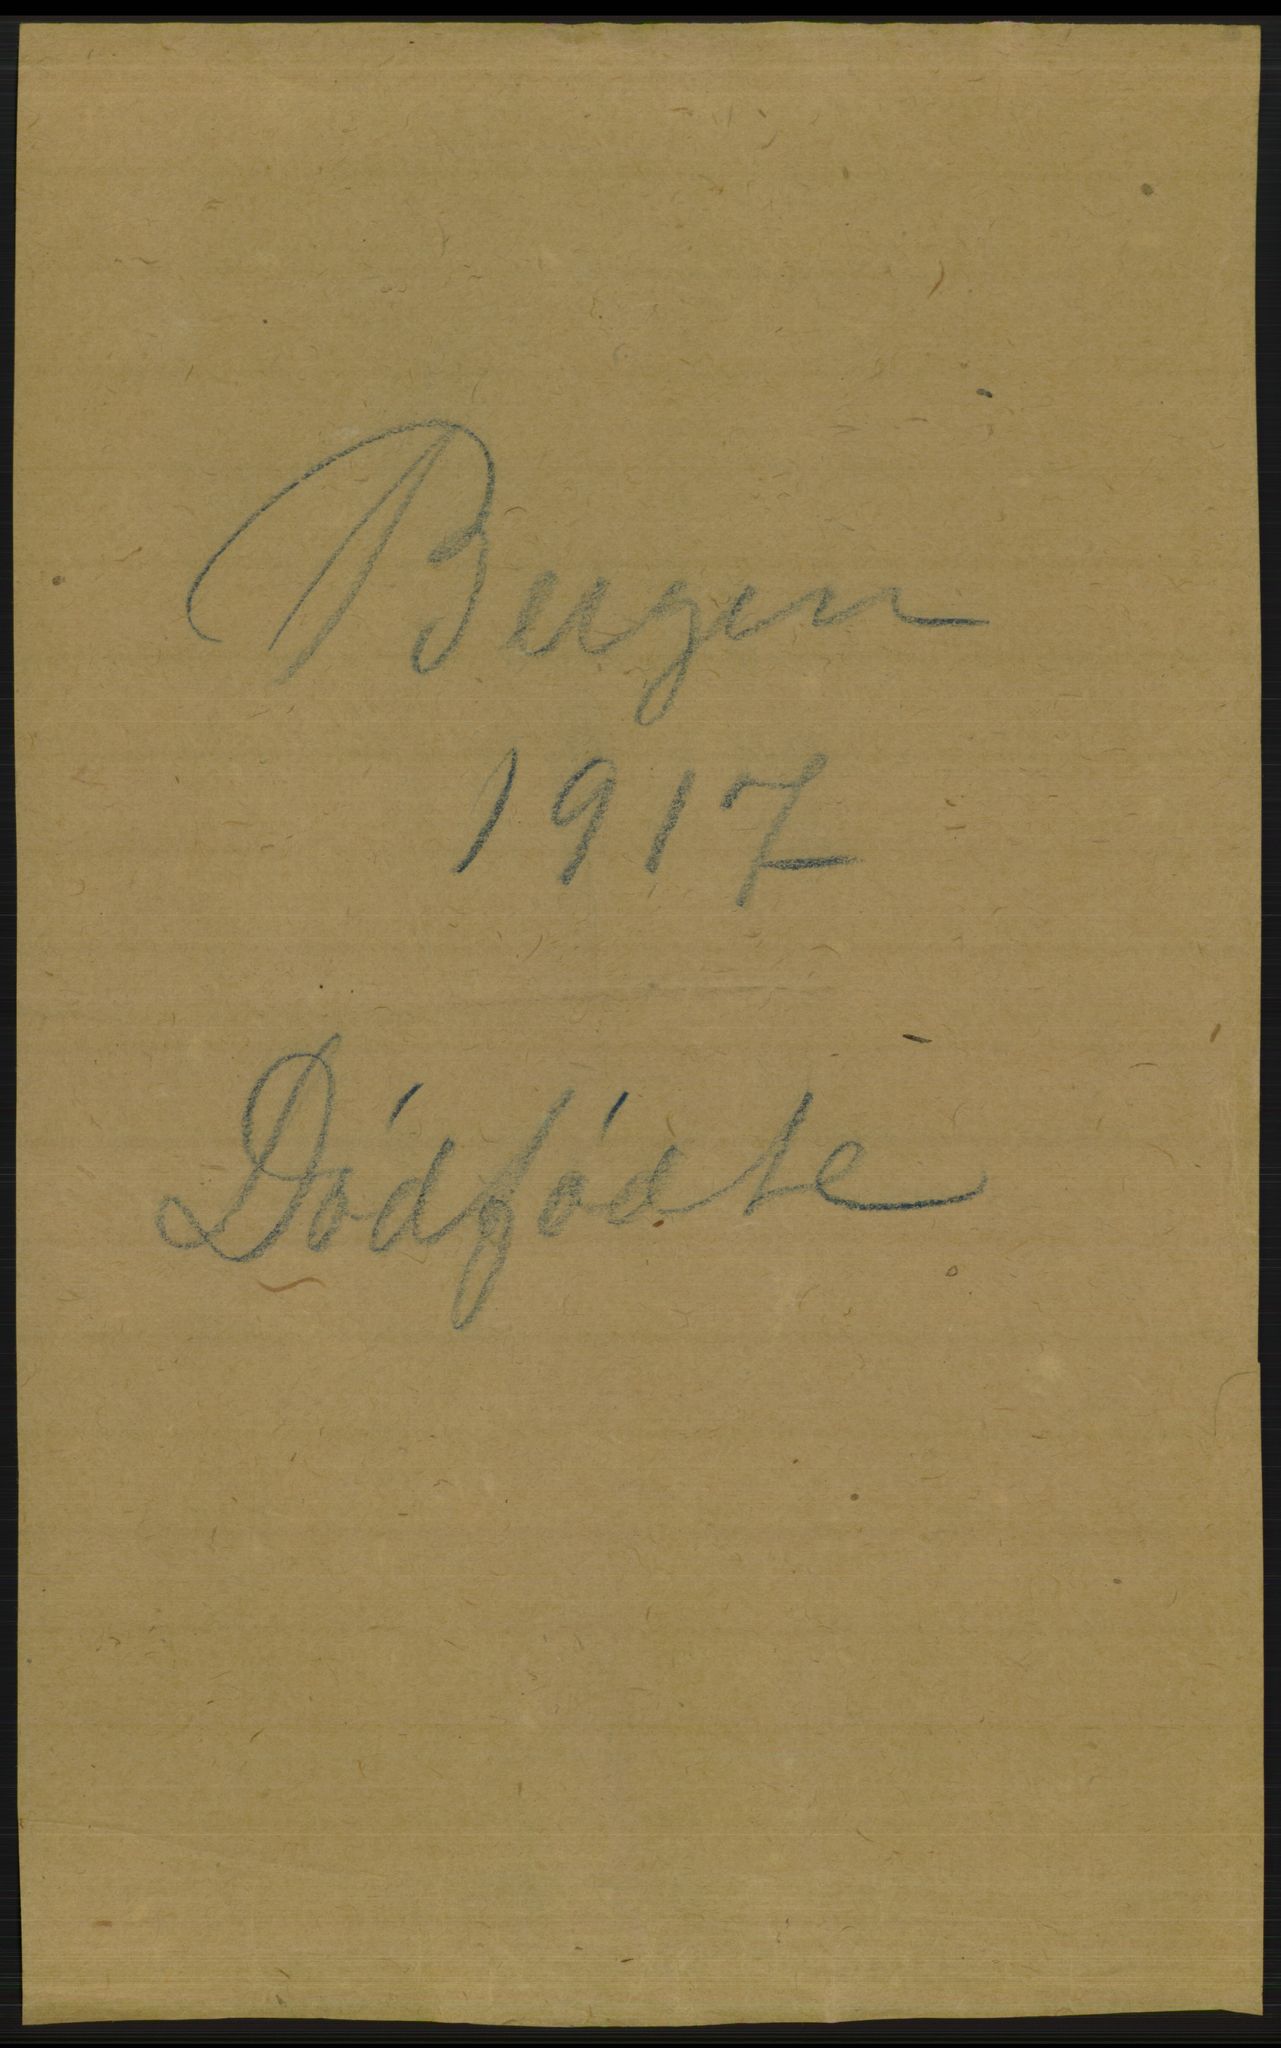 Bergen
1917
Dódfódte